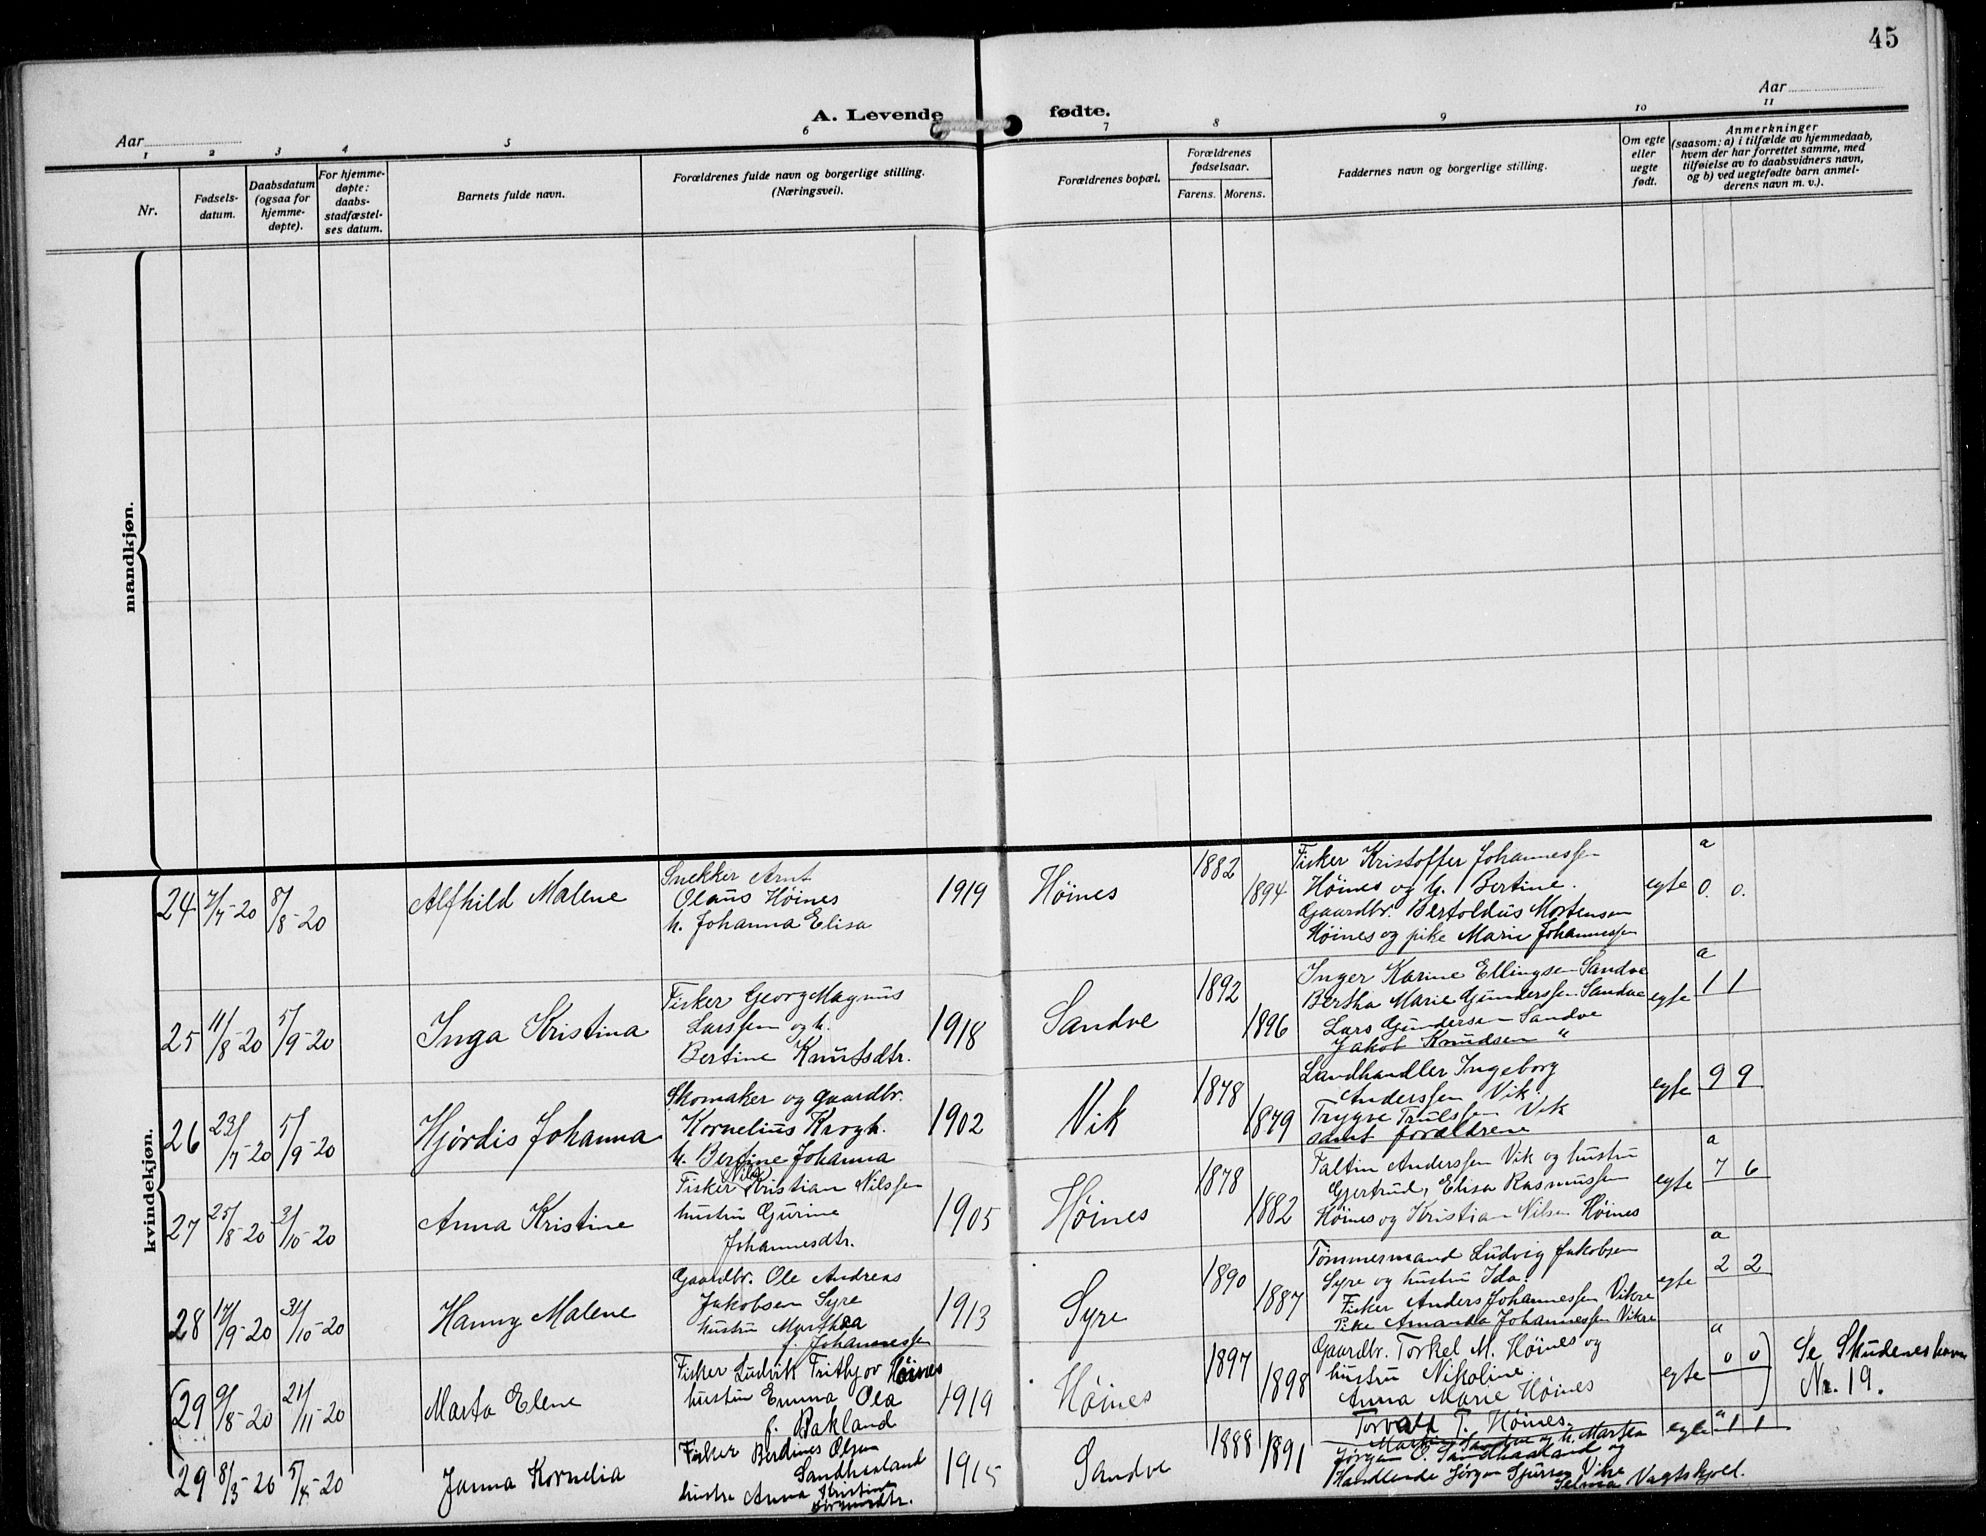 45
A. Levende fødte.
Aar
Aar
1 2 3 4 5 6 7 8 9 10 11
Nr.
Fødsels-
datum.
Daabsdatum
(ogsaa for
hjemme-
døpte).
For hjemme-
døpte:
daabs-
stadfæstel-
ses datum.
Barnets fulde navn.
Forældrenes fulde navn og borgerlige stilling.
(Næringsvei).
Forældrenes bopæl.
Forældrenes
fødselsaar.
Farens. Morens.
Faddernes navn og borgerlige stilling.
Om egte
eller
uegte
født.
Anmerkninger
(saasom: a) i tilfælde av hjemmedaab,
hvem der har forrettet samme, med
tilføielse av to daabsvidners navn,
og b) ved uegtefødte barn anmel-
derens navn m. v.).
mandkjøn.
kvindekjøn.
24 7/7-20 8/8-20
Alfhild Malene
Snekker Arnt
Olaus Høines
h. Johanna Elisa
1919
Høines
1882
1894
Fisker Kristoffer Johannessen
Høines og h. Bertine.
Gaardbr. Bertoldus Mortensen
Høines og pike Marie Johannessen
egte
a
0. 0.
25 11/8-20 5/9-20
Inga Kristina
Fisker Georg Magnus
Larssen og h.
Bertine Knutsdtr.
1918
Sandve
1892
1896
Inger Karine Ellingsen Sandve
Bertha Marie Gunderssen Sandve
Lars Gundersen Sandve
Jakob Knudsen "
egte
a
1 1
26 23/7-20 5/9-20
Hjørdis Johanna
Skomaker og gaardbr.
Kornelius Krogh.
h. Bertine Johanna
1902
Vik
1878
1879
Landhandler Ingeborg
Anderssen Vik.
Trygve Trulssen Vik
samt forældrene
egte
9 9
27 25/8-20 3/10-20
Anna Kristine
Nils
Fisker Kristian Nilssen
hustru Gurine
Johannesdtr.
1905
Høines
1878
1882
Faltin Anderssen Vik og hustru
Gjertrud, Elisa Rasmussen
Høines og Kristian Nilsen Høines
egte
a
7 6
28 17/9-20 31/10-20
Hanny Malene
Gaardbr. Ole Andreas
Jakobsen Syre
hustru Martha
f. Johannessen
1913
Syre
1890
1887
Tømmermand Ludvig Jakobsen
Syre og hustru Ida.
Fisker Anders Johannessen Vikre
Pike Amanda Johannessen Vikre
egte
a
2 2
(29 9/8-20 21/11-20
Marta Elene
Fisker Ludvik Fritbjov Høines
hustru Emma Ola
f. Bakland
1919
Høines
1897
1898
Gaardbr. Torkel M. Høines og
hustru Nikoline.
Anna Marie Høines
Torvald T. Høines.
egte
a
0 0)
Se Skudeneshavn
Nr. 19.
29 8/3-20 5/4-20
Janna Kornelia
Fisker Berdines Olsen
Sandhaaland
hustru Anna Kristine
1915
Sandve
1888
1891
Jørgen O. Sandhaaland og
Handlende Jørgen Sjursen Vikre
Selma Vagtskjold.
egte
a
1 1